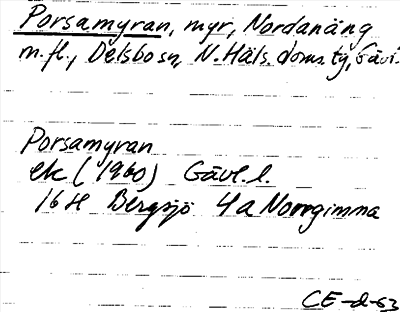 Porsamyran, myr, Nordanäng
m. fl., Delsbo sn, N. Häls. doms. tg, Gävl.
Porsamyran
ek (1960) Gävl. l.
16 H Bergsjö 4 a Norrgimma
CE-d-63